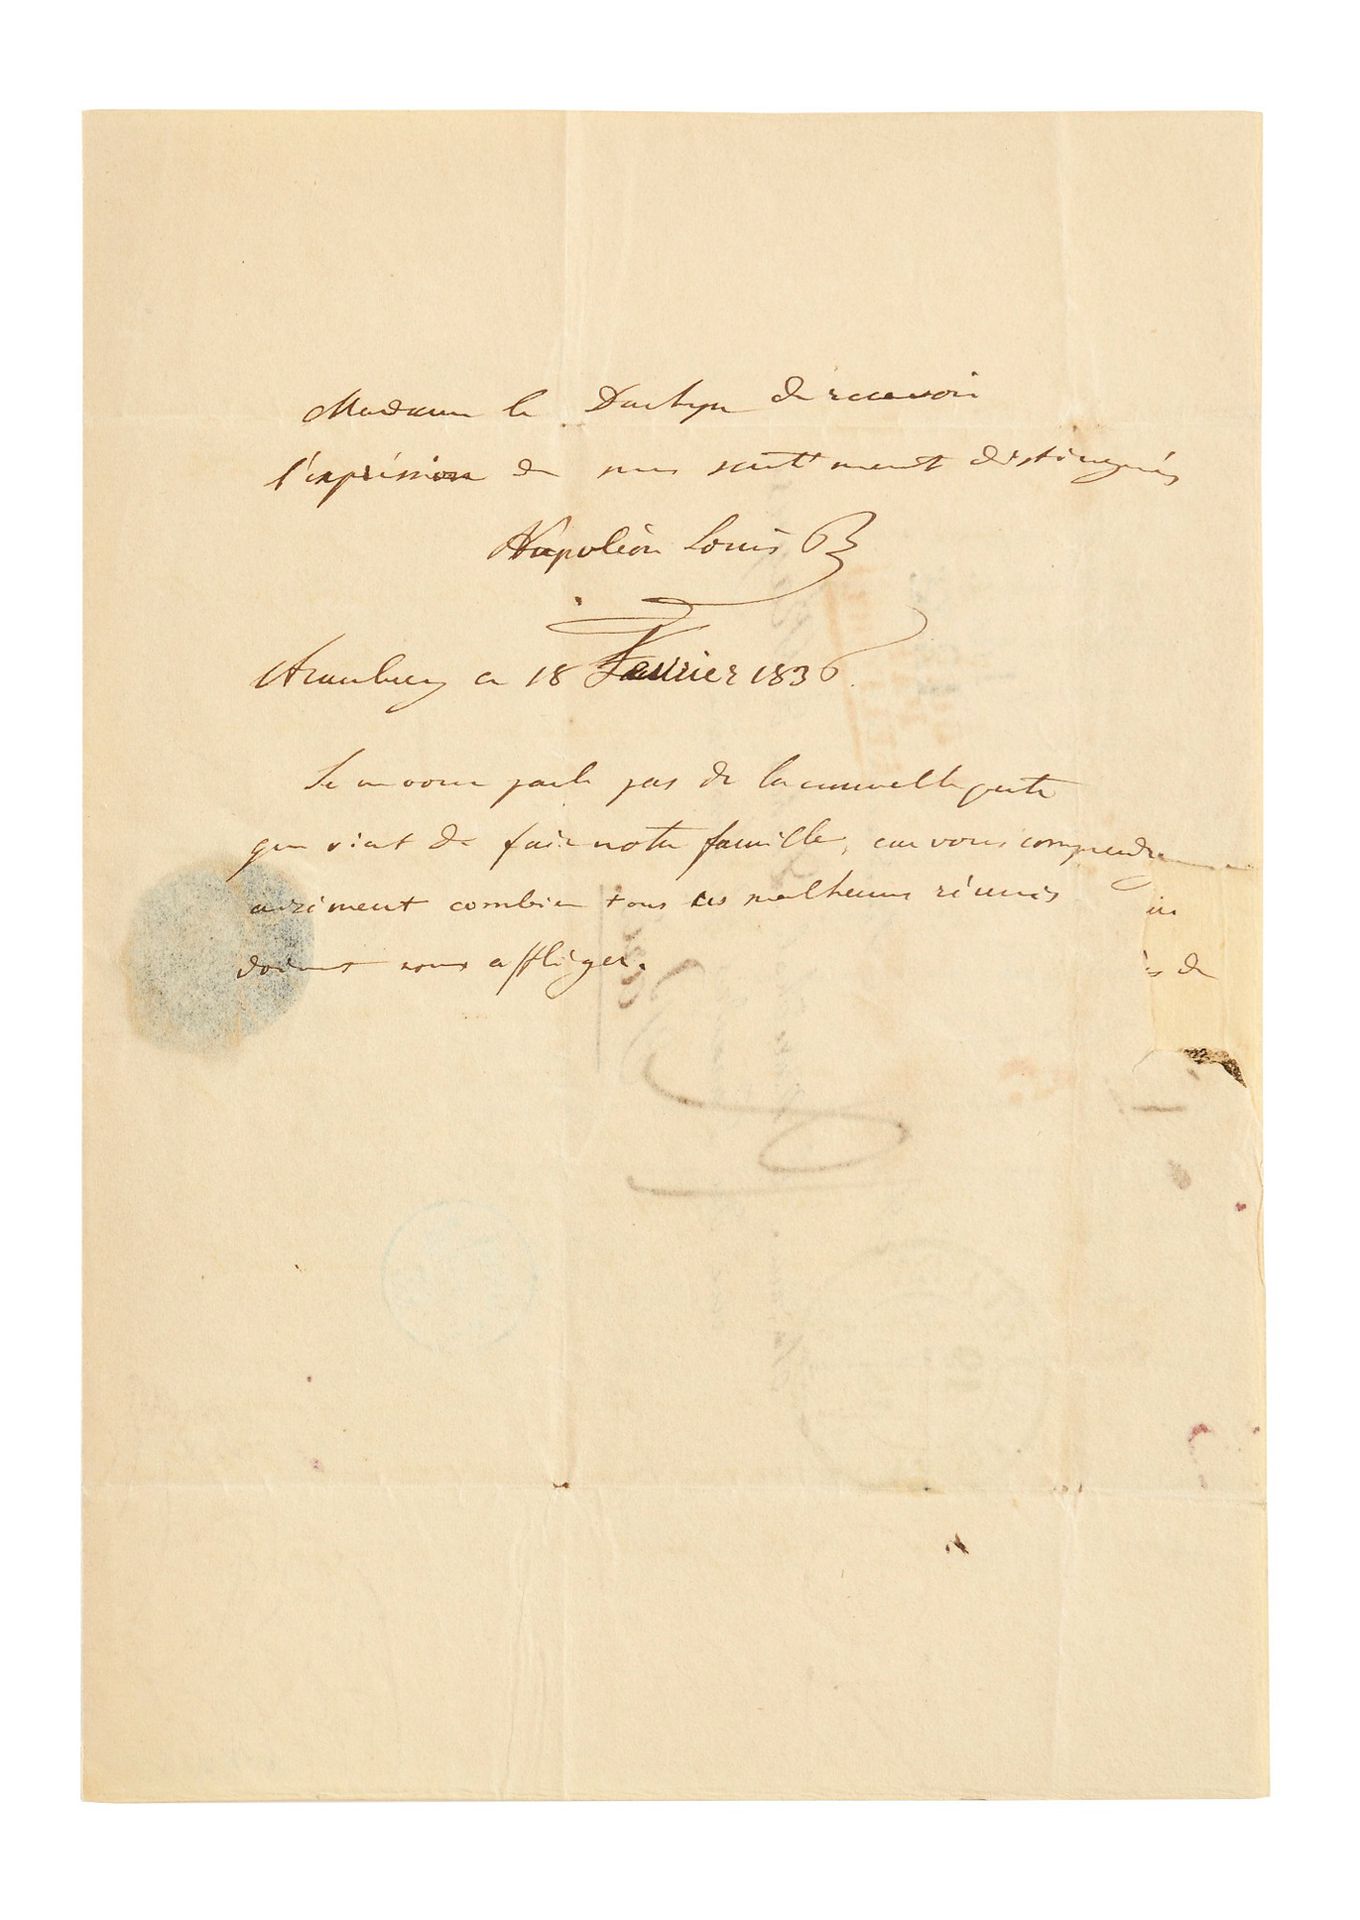 Madame la Duchesse de recevoir
l'expréssion de mes sentiments distingués
Napoléon Louis B
Arenberg ce 18 Fevrier 1836
Je ne vous parle pas de la nouvelle perte
que vient de faire notre famille, car vous comprendrez
aisément combien tous ces malheurs réunis
doivent nous affliger.
de